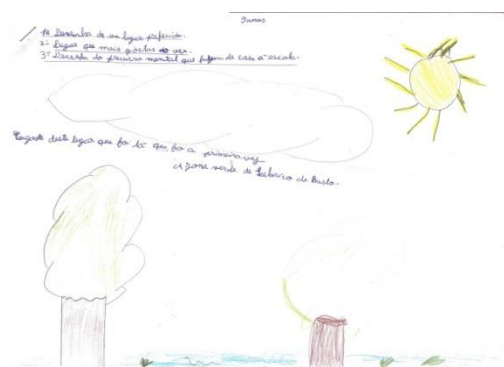 9 anos
1º Desenho de um lugar preferido.
2º lugar que mais gostas de ver.
3º Desenho do percurso mental que fazem de casa à escola.
deste lugar que foi lá que foi a primeira vez
A zona verde de Celorico de Basto.